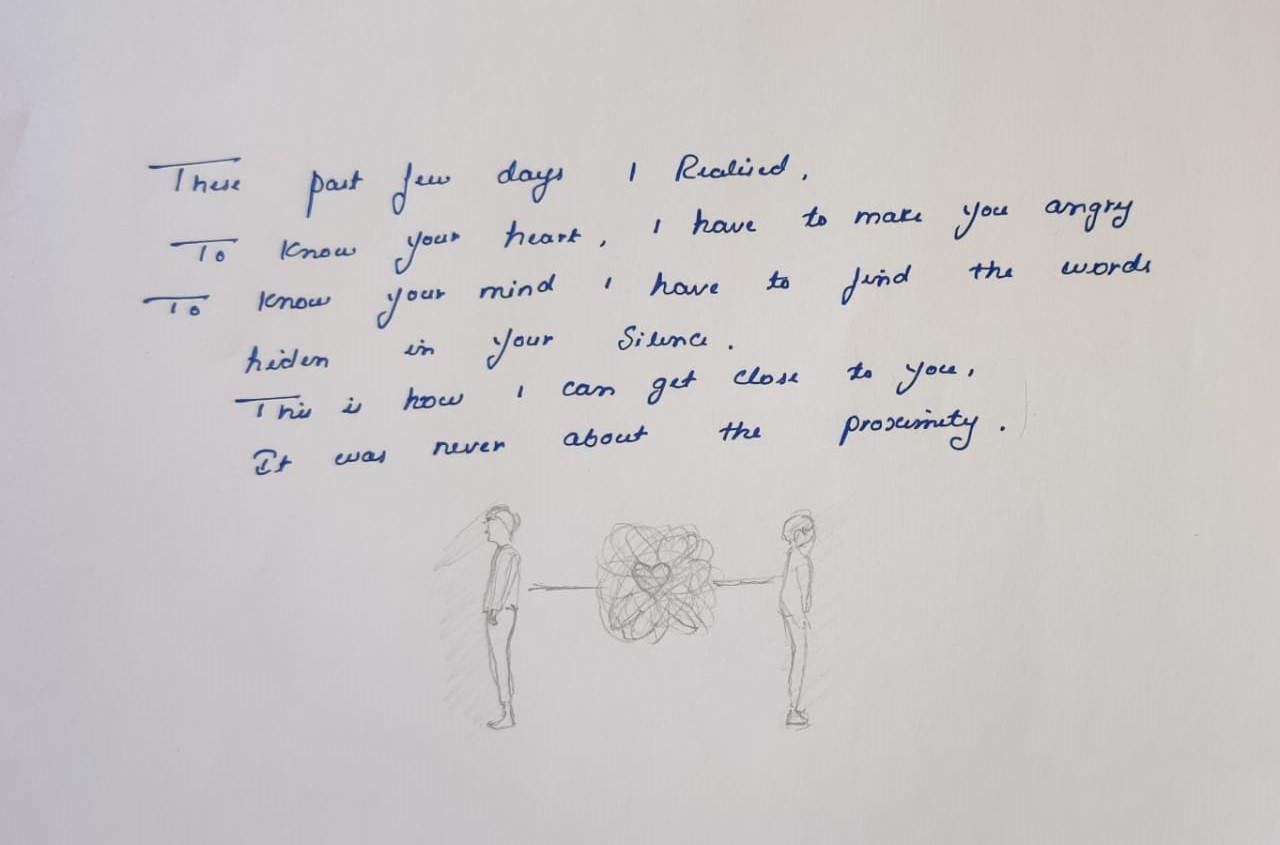 These past few days I Realised,
To know your heart, I have to make you angry
To know your mind I have to find the words
hiden in your Silence.
This is how I can get close to you,
It was never about the proximity.